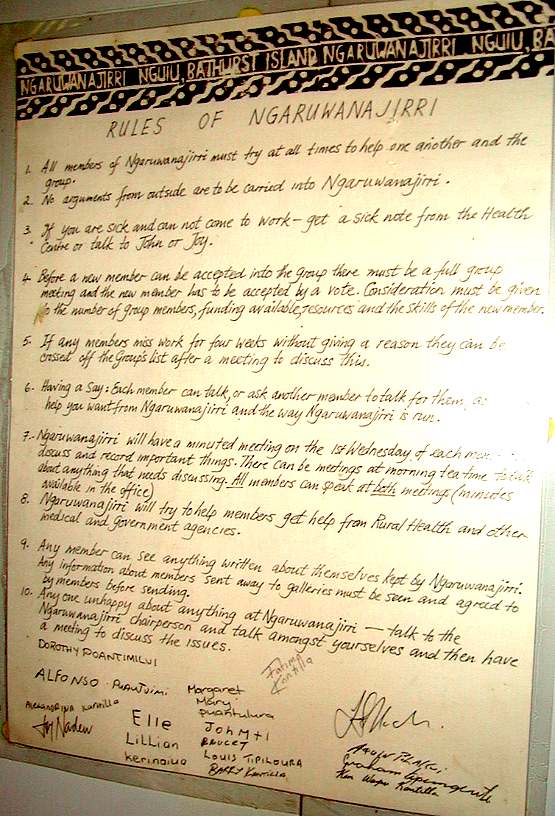 NGARUWANAJIRRI NGUIU, BATHURST ISLAND NGARUWANAJIRRI NGUIU, BA
RULES OF NGARUWANAJIRRI
1. All members of Ngaruwanajirri must try at all times to help one another and the
group.
2. No arguments from outside are to be carried into Ngaruwanajirri.
3. If you are sick and can not come to work - get a sick note from the Health
Centre or talk to John or Joy.
4. Before a new member can be accepted into the group there must be a full group
meeting and the new member has to be accepted by a vote. Consideration must be given
to the number of group members, funding available, resources and the skills of the new member.
5. If any members miss work for four weeks without giving a reason they can be
crossed off the Group's list after a meeting to discuss this.
6. Having a Say: Each member can talk, or ask another member to talk for them, as
help you want from Ngaruwanajirri and the way Ngaruwanajirri is run.
7. Ngaruwanajirri will have a minuted meeting on the 1st Wednesday of each
discuss and record important things. There can be meetings at morning tea time to talk
about anything that needs discussing. All members can speak at both meetings (minutes
available in the office)
8. Ngaruwanajirri will try to help members get help from Rural Health and other
medical and government agencies.
9. Any member can see anything written about themselves kept by Ngaruwanajirri.
Any information about members sent away to galleries must be seen and agreed to
by members before sending.
10. Any one unhappy about anything at Ngaruwanajirri — talk to the
Ngaruwanajirri chairperson and talk amongst yourselves and then have
a meeting to discuss the issues.
DOROTHY
Fatima
Kantilla
ALFONSO PUAUTJIMI
Margaret
Mary
Alexandrina Kantilla
Joy Naden
Elle
Lillian
kerinaiua
John M+1
BRUCE T
LOUIS TIPILOURA
BARRY Kantilla
Ken Wayne Kantilla